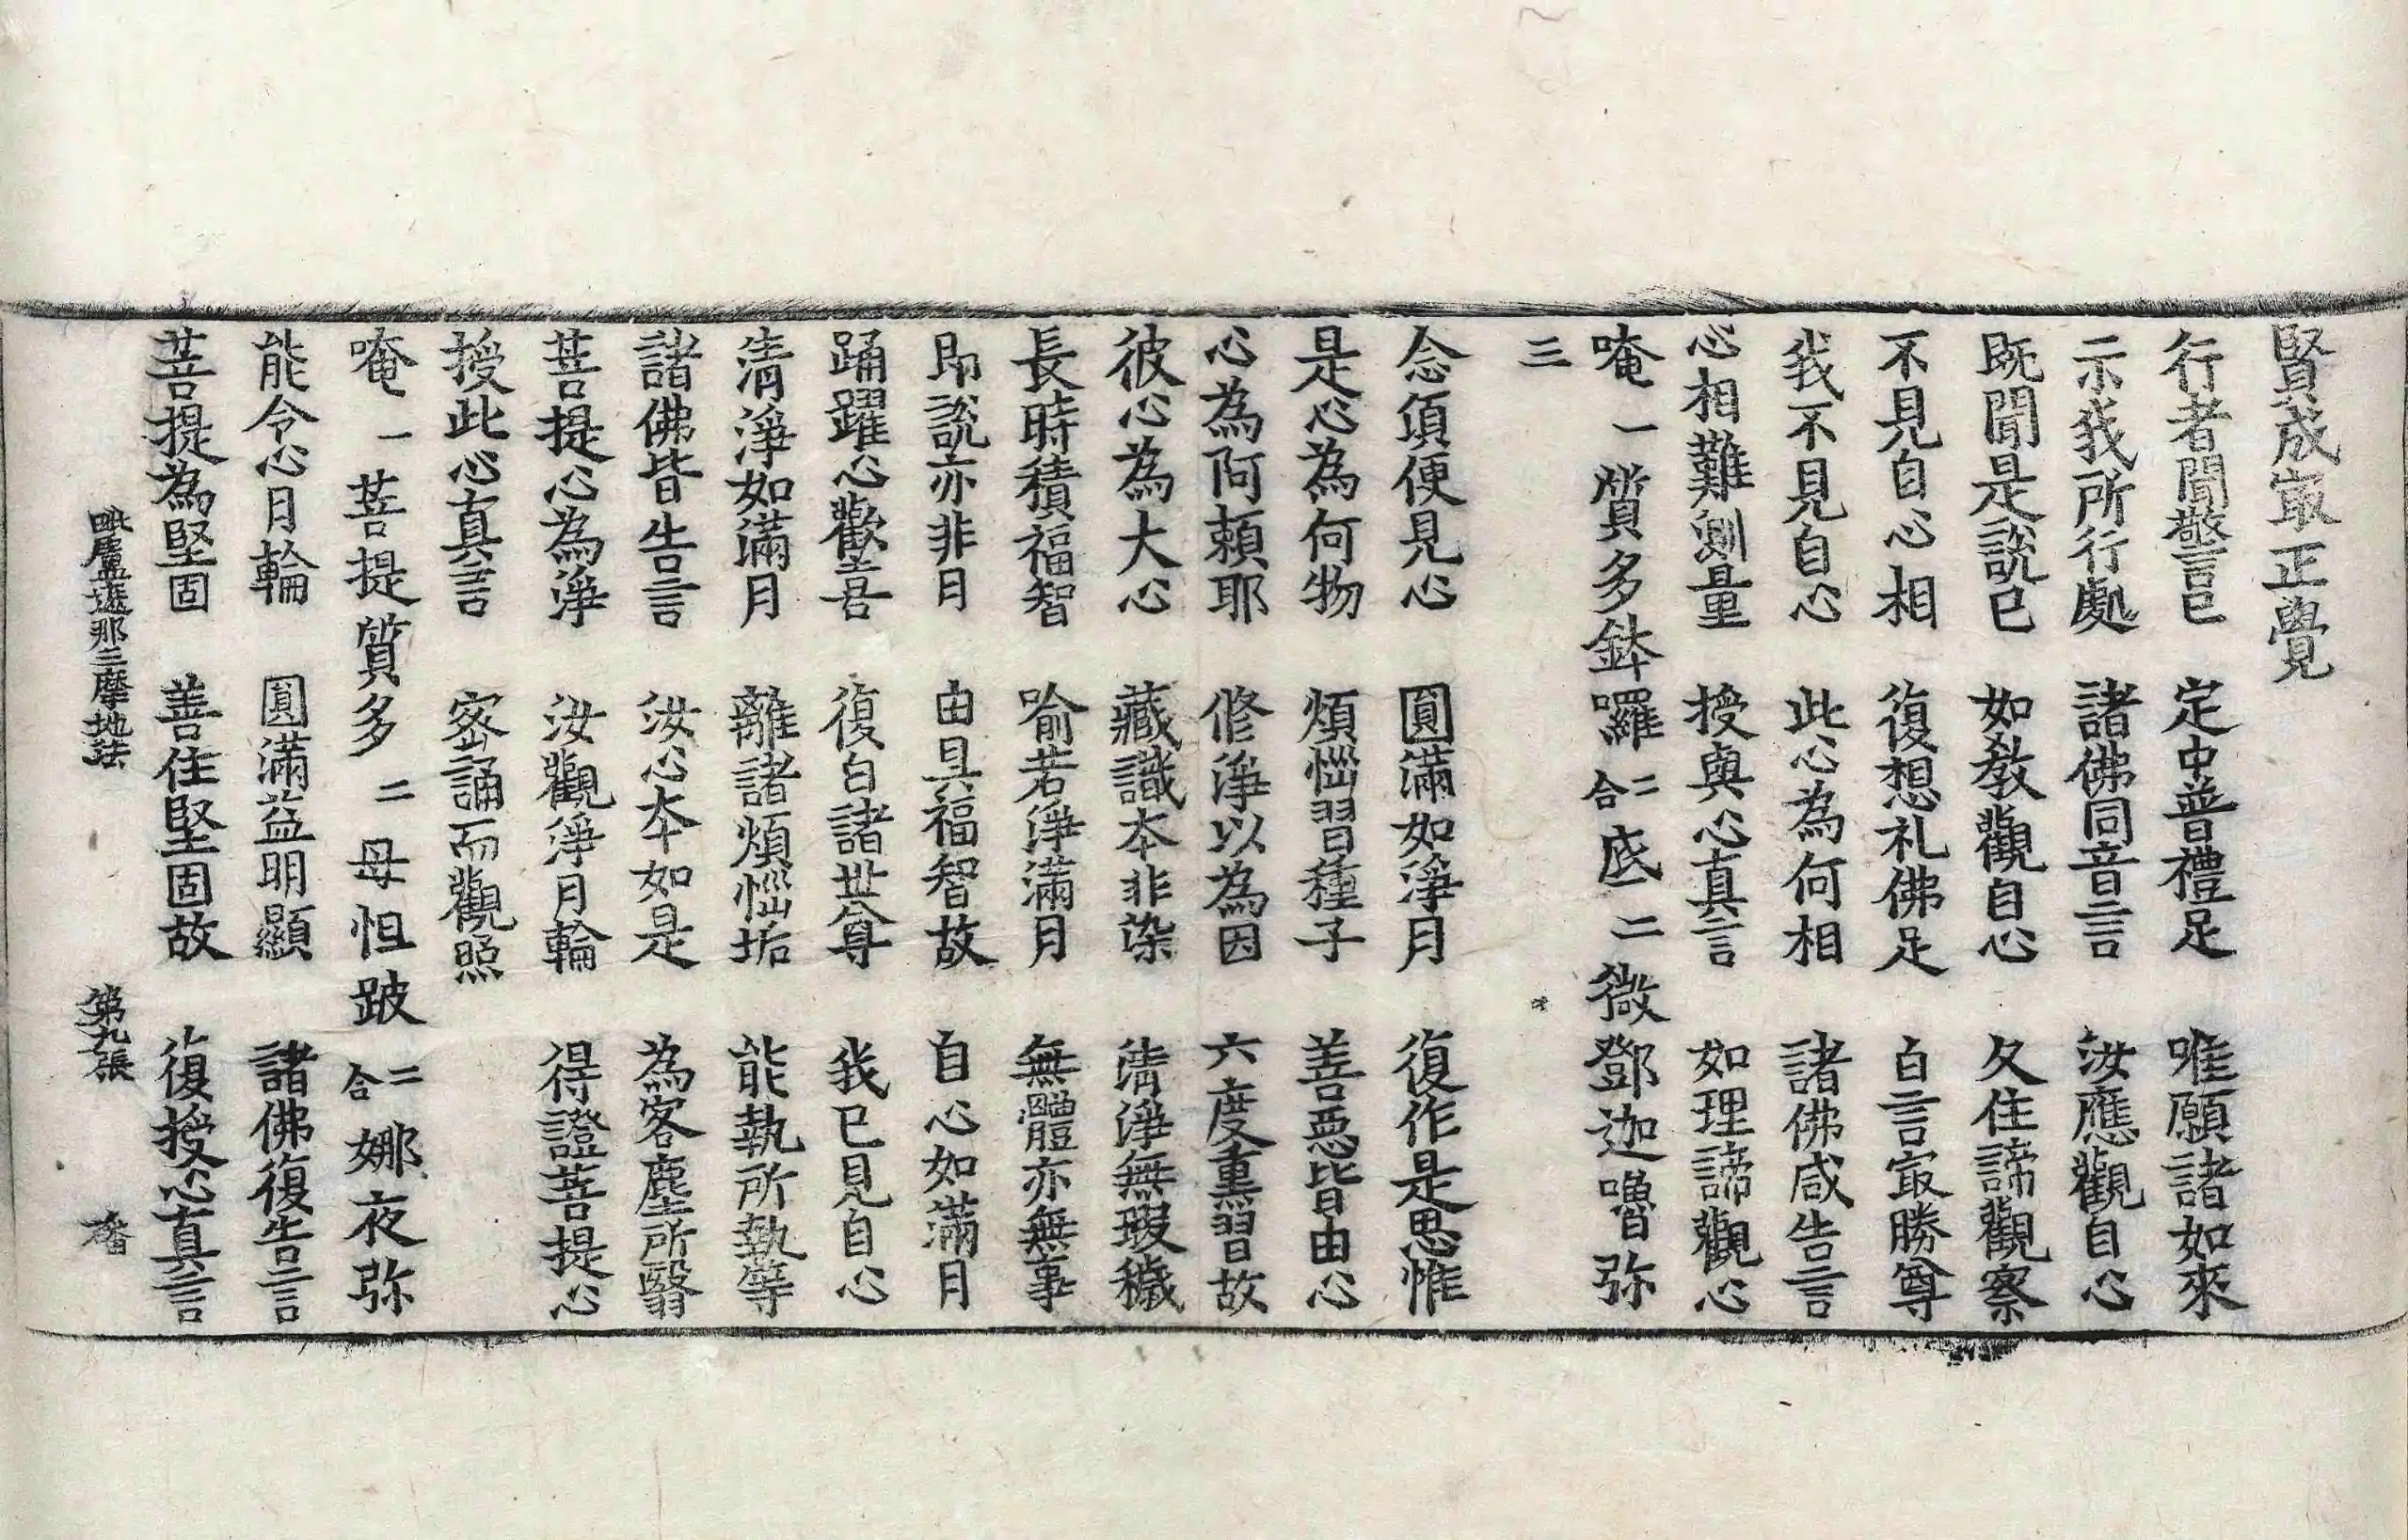 賢成㝡正覺
行者聞警言已 定中普禮足 唯願諸如來
示我所行處 諸佛同音言 汝應觀自心
既聞是說已 如教觀自心 久住諦觀察
不見自心相 復想礼佛足 白言㝡勝尊
我不見自心 此心為何相 諸佛咸告言
心相難測量 授與心真言 如理諦觀心
唵一質多鉢囉二合底二微鄧迦嚕弥
三
念頃便見心 圓滿如淨月 復作是思惟
是心為何物 煩惱習種子 善惡皆由心
心為阿賴耶 修淨以為因 六度熏習故
彼心為大心 藏識本非染 清淨無瑕穢
長時積福智 喻若淨滿月 無體亦無事
即說亦非月 由具福智故 自心如滿月
踊躍心歡喜 復白諸世尊 我已見自心
清淨如滿月 離諸煩惱垢 能執所執等
諸佛皆告言 汝心本如是 為客塵所翳
菩提心為淨 汝觀淨月輪 得證菩提心
授此心真言 密誦而觀照
唵一菩提質多二母怛跛二合娜夜弥
能令心月輪 圓滿益明顯 諸佛復告言
菩提為堅固 善住堅固故 復授心真言
毗盧遮那三摩地法 第九張